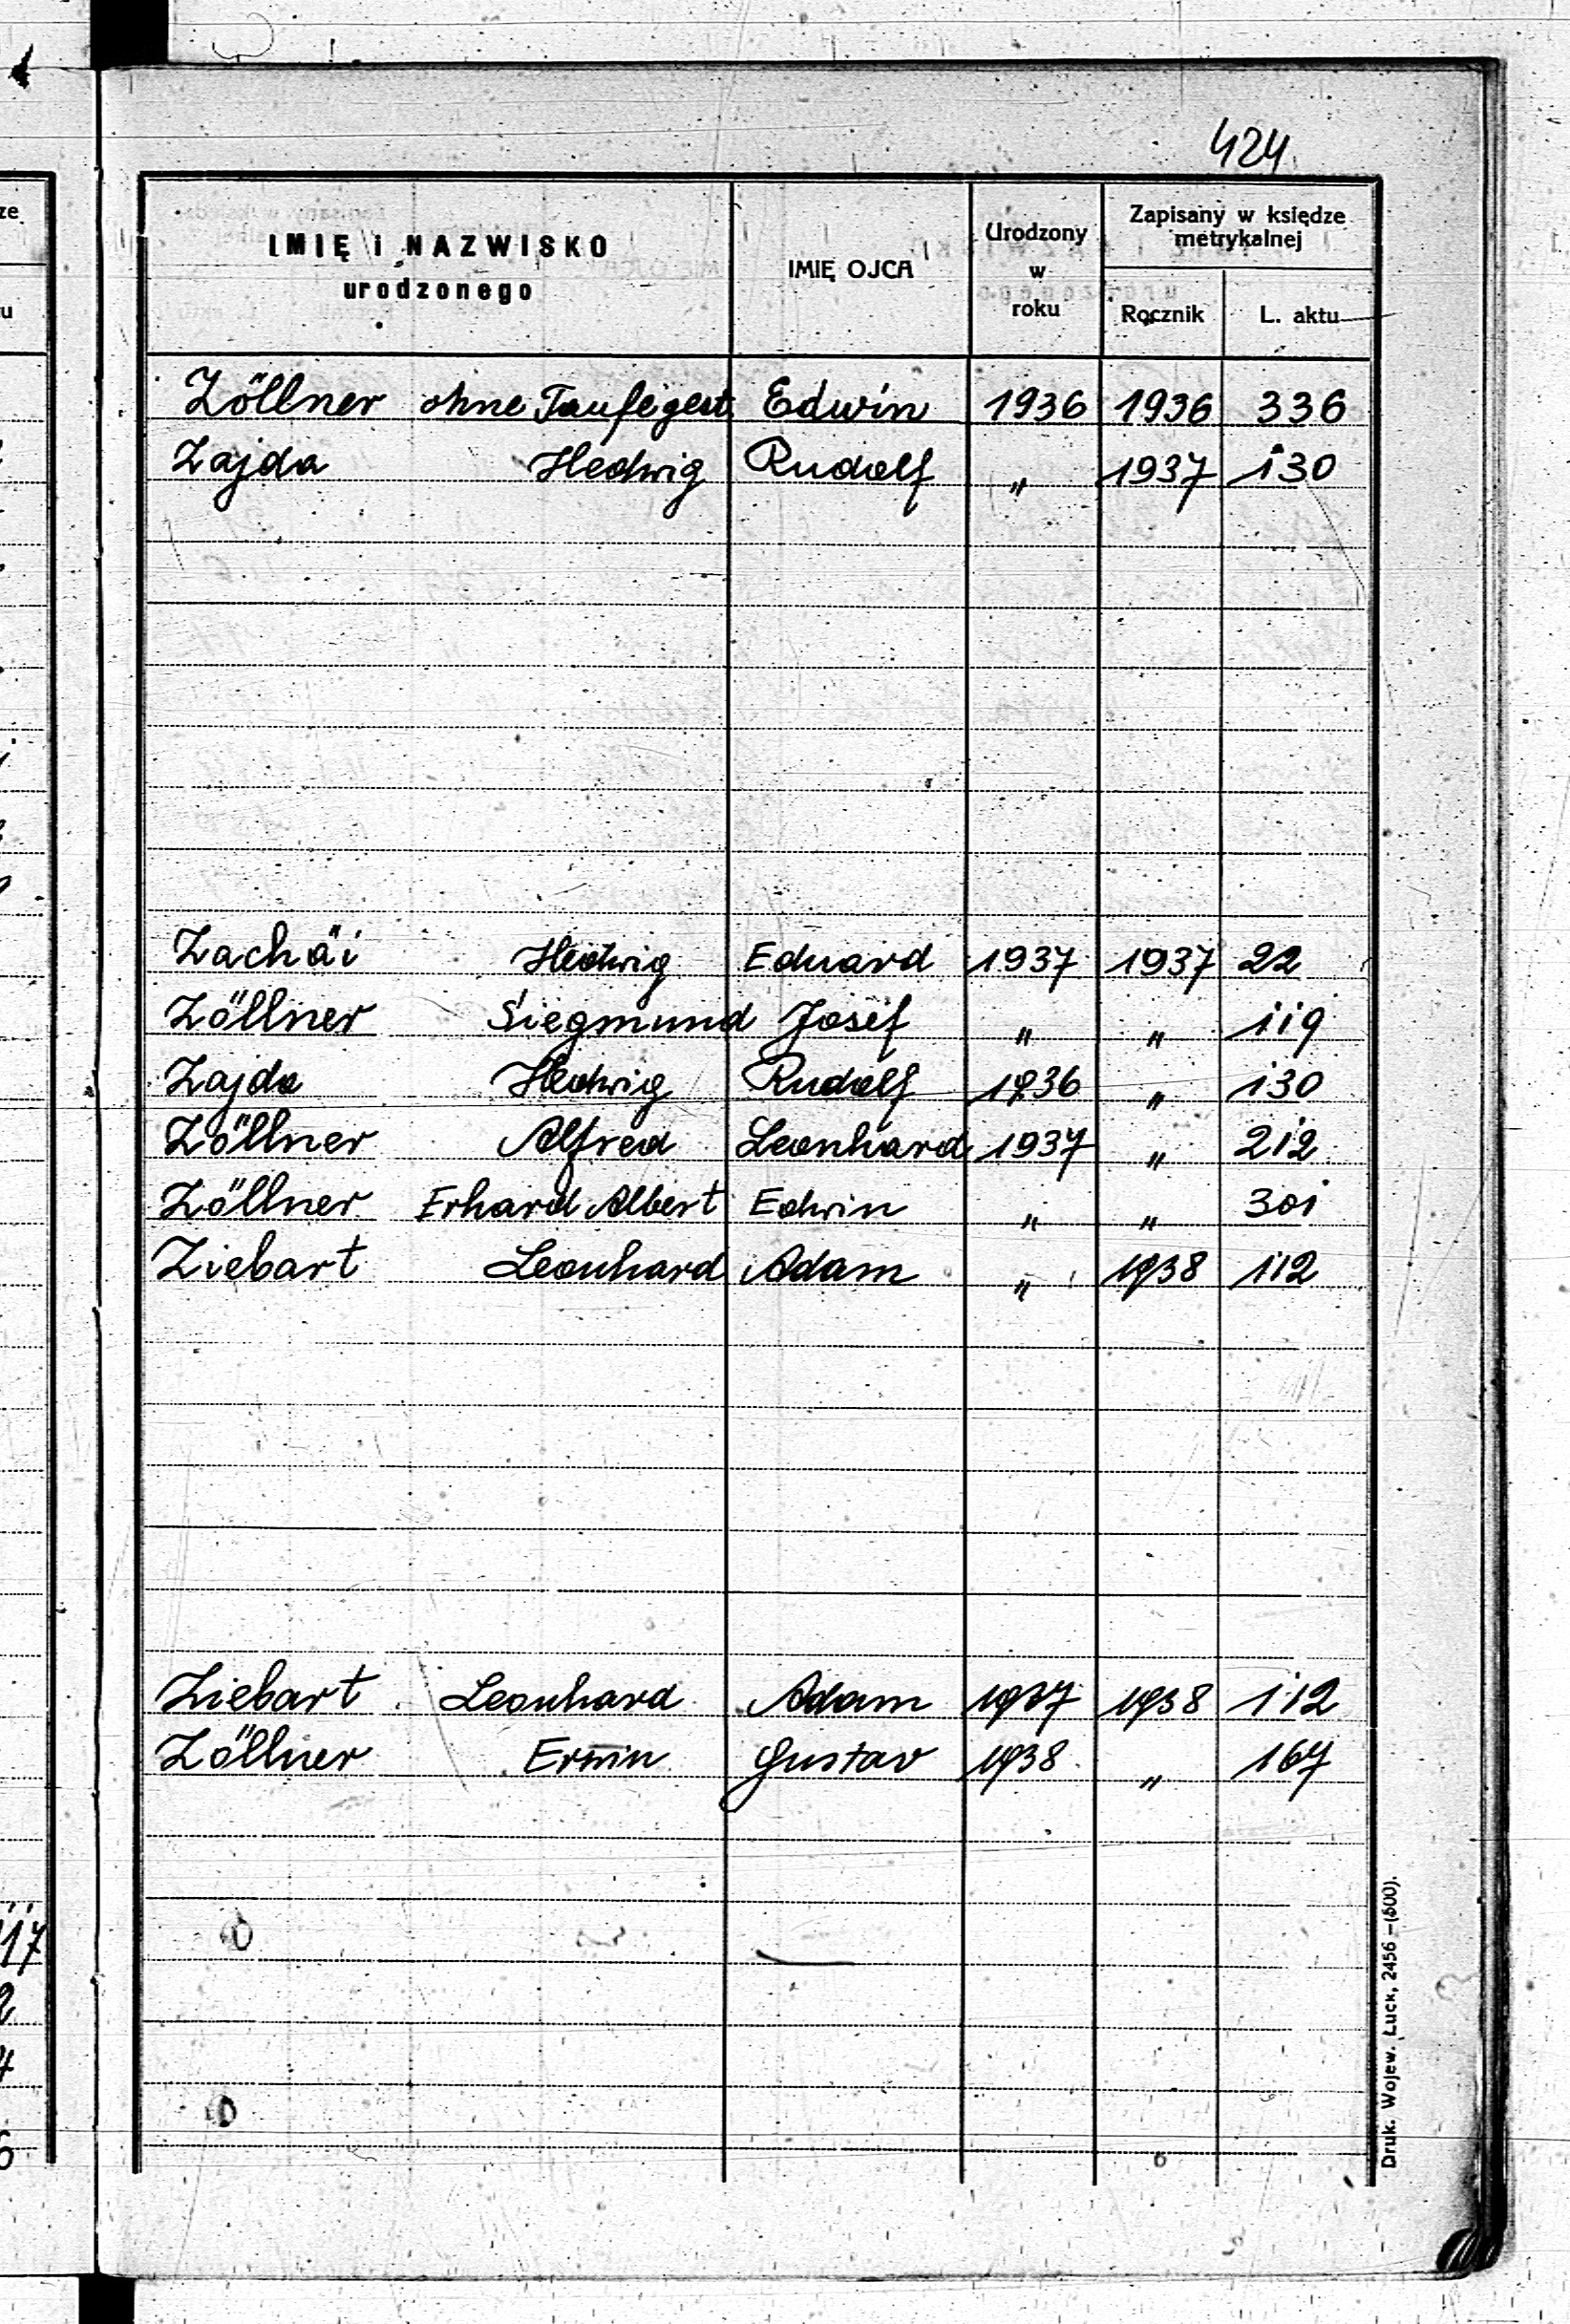 424
IMIĘ i NAZWISKO
urodzonego
IMIĘ OJCA
Urodzony
w
roku
Zapisany w księdze
metrykalnej
Rocznik
L. aktu
Zöllner ohne Taufe gest. Edwin 1936 1936 336
Zajda Hedwig Rudolf " 1937 130
Zachäi Hedwig Eduard 1937 1937 22
Zöllner Siegmund Josef " " 119
Zajda Hedwig Rudolf 1936 " 130
Zöllner Alfred Leonhard 1937 " 212
Zöllner Erhard Albert Edwin " " 301
Ziebart Leonhard Adam " 1938 112
Ziebart Leonhard Adam 1937 1938 112
Zöllner Erwin Gustav 1938 " 167
Druk. Wojew. Łuck, 2456 —(500).